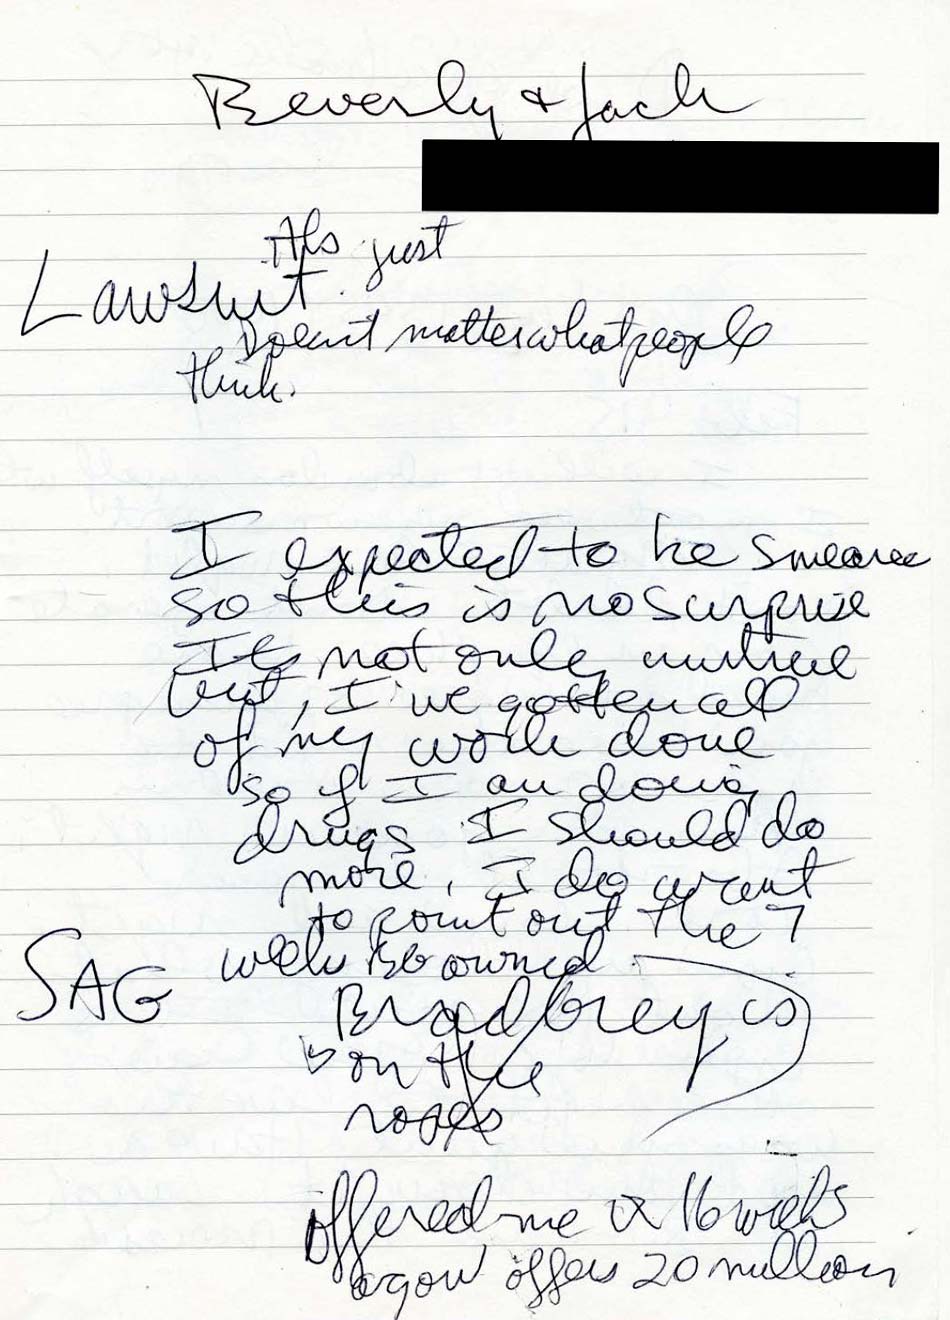 Beverly & Jack
Its just
Lawsuit.
Doesnt matter what people
think.
I expected to be smeared
so this is no surprise
Its not only untrue
but, I've gotten all
of my work done
so if I am doing
drugs I should do
more. I do want
to point out the 7
SAG
week owned
Bradbrey is
on the
ropes
offered me 16 weeks
ago offers 20 million